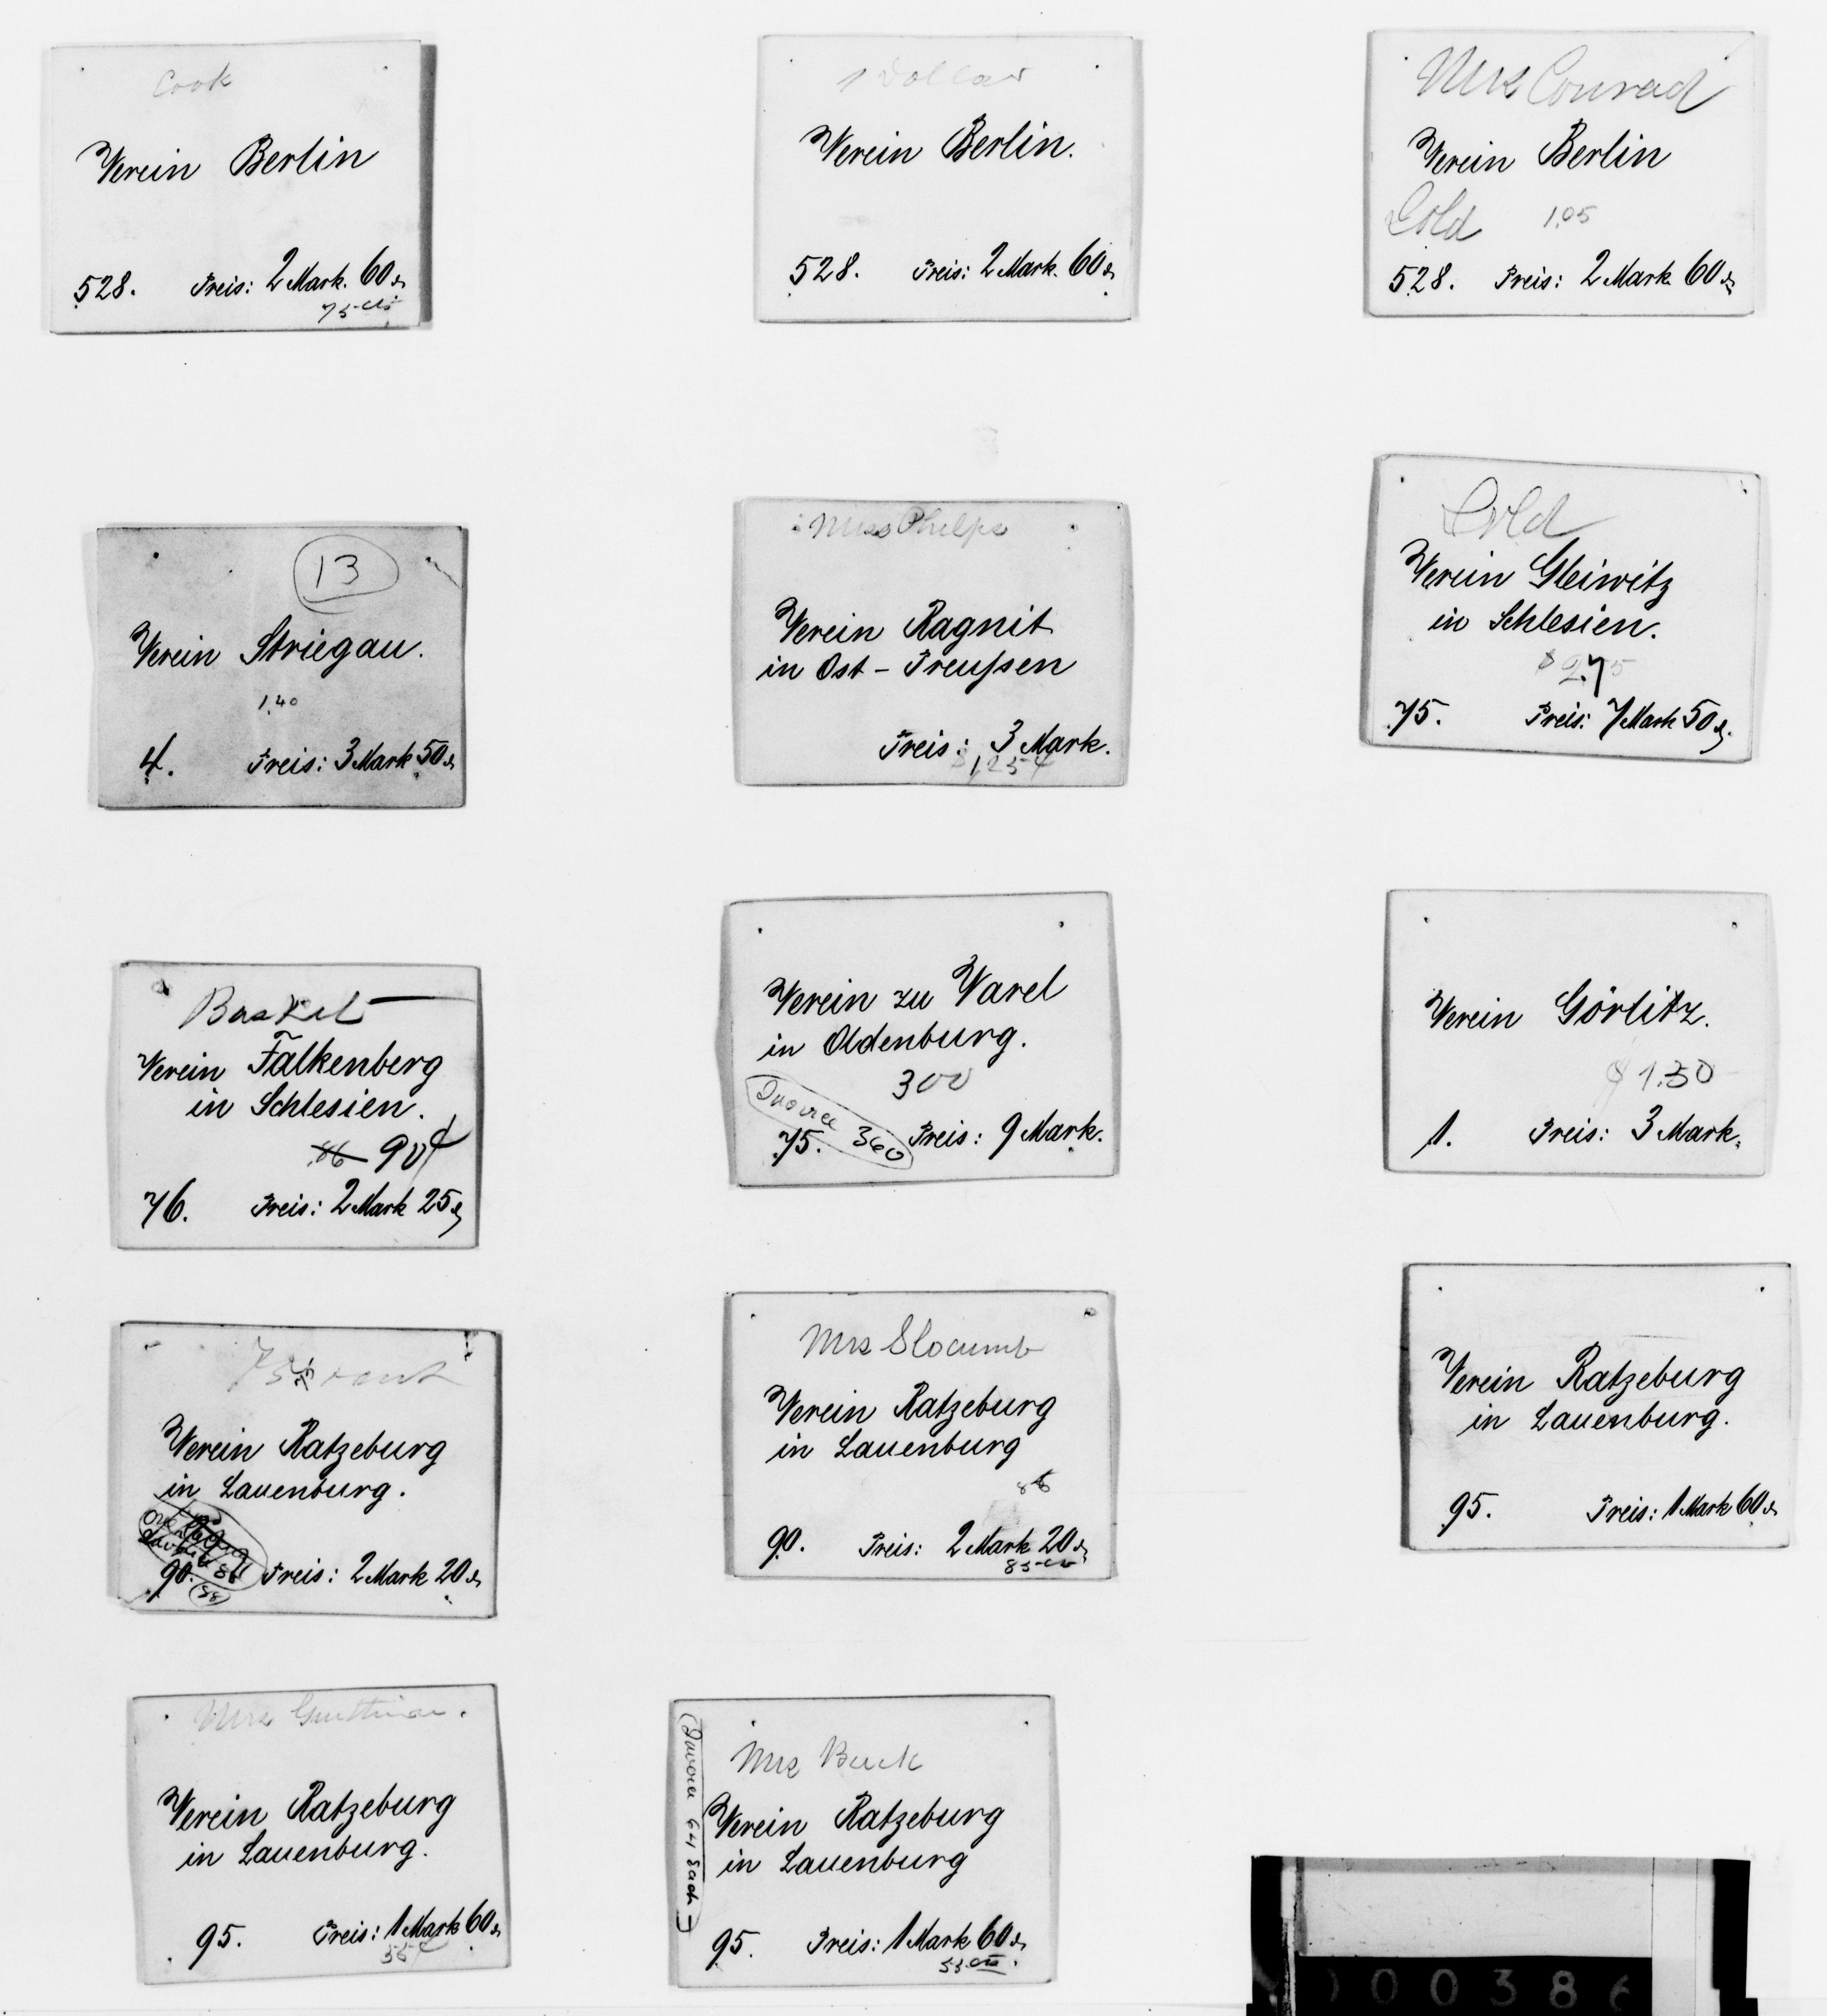 Cook
Verein Berlin
528. Preis: 2 Mark. 60 ₰
75 cts
1 Dollar
Verein Berlin.
528. Preis: 2 Mark. 60 ₰
Mrs Conrad
Verein Berlin
Sold 1.05
528. Preis: 2 Mark 60 ₰
13
Verein Striegau.
1.40
4. Preis: 3 Mark 50 ₰
Miss Phelps
Verein Ragnit
in Ost-Preußen
Preis: 3 Mark.
$ 1,25
Sold
Verein Gleiwitz
in Schlesien.
$ 2.75
75. Preis: 7 Mark 50 ₰.
Basket
Verein Falkenberg
in Schlesien.
90¢
76. Preis: 2 Mark 25 ₰
Verein zu Varel
in Oldenburg.
300
Invoice 360
75. Preis: 9 Mark.
Verein Görlitz.
$ 1.30
1. Preis: 3 Mark.
Verein Ratzeburg
in Lauenburg.
90. 88 Preis: 2 Mark 20 ₰
(88)
Mrs Slocumb
Verein Ratzeburg
in Lauenburg
90. Preis: 2 Mark 20 ₰
85 cts
Verein Ratzeburg
in Lauenburg.
95. Preis: 1 Mark 60 ₰
Mrs
Verein Ratzeburg
in Lauenburg.
95. Preis: 1 Mark 60 ₰
55¢
Invoice 64 each
Mrs Buck
Verein Ratzeburg
in Lauenburg
95. Preis: 1 Mark 60 ₰
55 cts.
00386